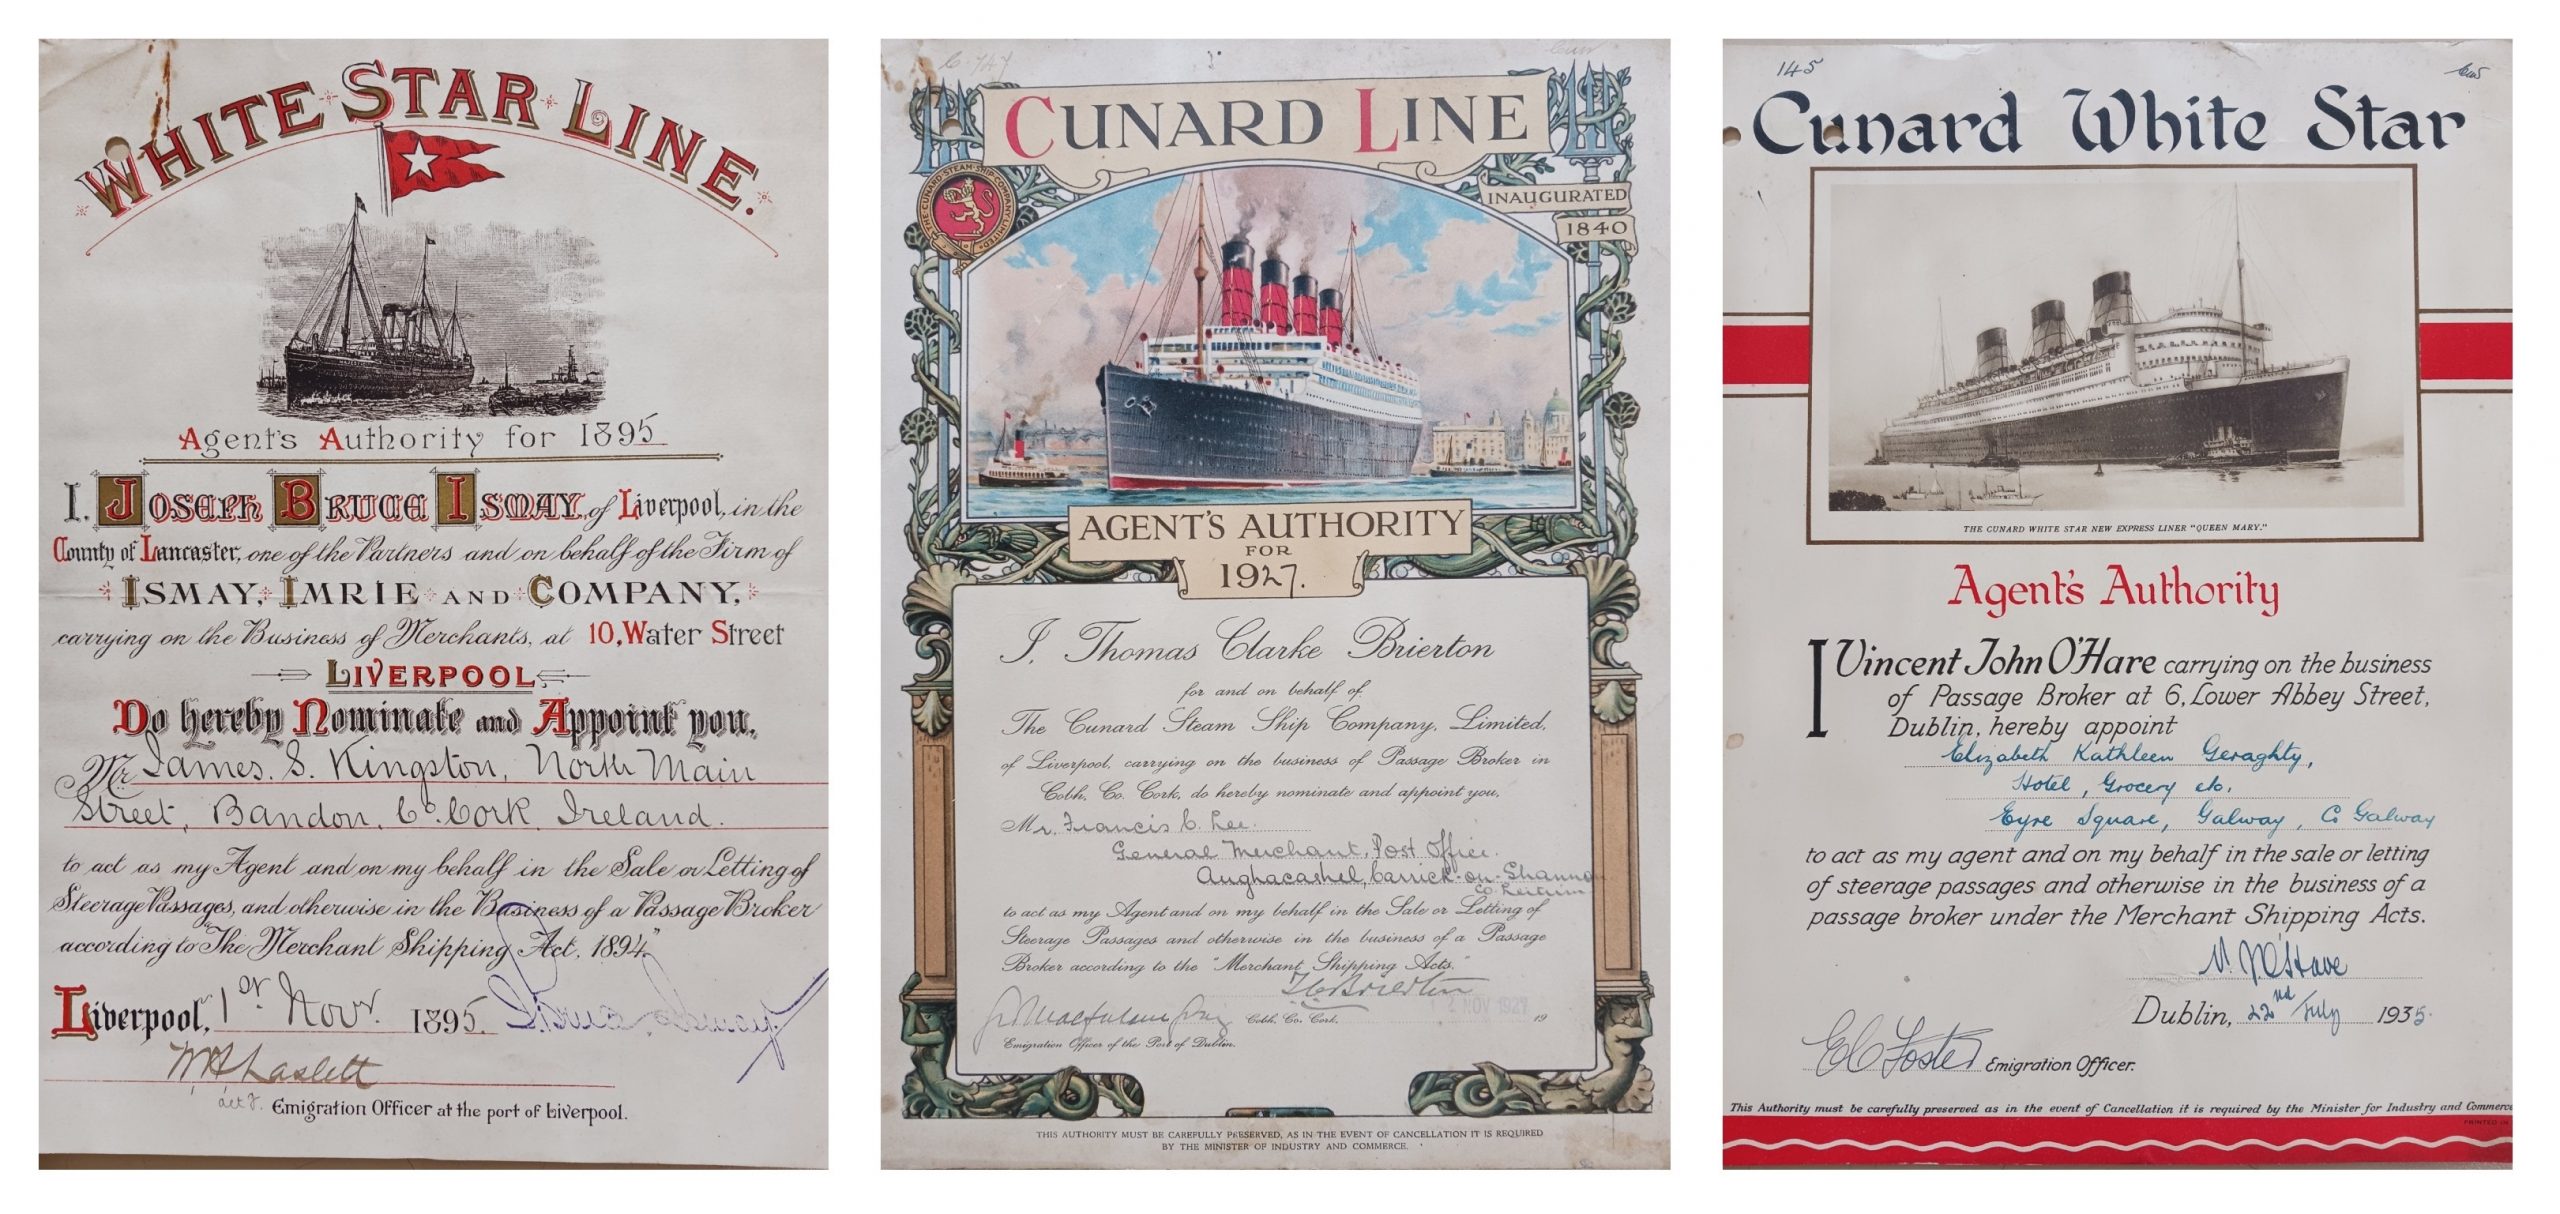 WHITE STAR LINE.
Agent's Authority for 1895
I, JOSEPH BRUCE ISMAY, of Liverpool, in the
County of Lancaster, one of the Partners and on behalf of the Firm of
ISMAY, IMRIE AND COMPANY,
carrying on the Business of Merchants, at 10, Water Street
LIVERPOOL,
Do hereby Nominate and Appoint you,
Mr James. S. Kingston, North Main
Street, Bandon, Co. Cork, Ireland.
to act as my Agent and on my behalf in the Sale or Letting of
Steerage Passages, and otherwise in the Business of a Passage Broker
according to "The Merchant Shipping Act, 1894."
Liverpool, 1st Novr. 1895. J. Bruce Ismay.
Emigration Officer at the port of Liverpool.
CUNARD LINE
THE CUNARD STEAM-SHIP COMPANY LIMITED
INAUGURATED
1840
AGENT'S AUTHORITY
FOR
1927.
I, Thomas Clarke Brierton
for and on behalf of
The Cunard Steam Ship Company, Limited,
of Liverpool, carrying on the business of Passage Broker in
Cobh, Co. Cork, do hereby nominate and appoint you,
Mr. Francis C. Lee
General Merchant, Post Office.
Aughacashel, Carrick-on-Shannon
Co. Leitrim
to act as my Agent and on my behalf in the Sale or Letting of
Steerage Passages and otherwise in the business of a Passage
Broker according to the "Merchant Shipping Acts."
T C Brierton
Cobh, Co. Cork, 2 NOV 1927 19
Emigration Officer of the Port of Dublin.
THIS AUTHORITY MUST BE CAREFULLY PRESERVED, AS IN THE EVENT OF CANCELLATION IT IS REQUIRED
BY THE MINISTER OF INDUSTRY AND COMMERCE.
145
Cunard White Star
THE CUNARD WHITE STAR NEW EXPRESS LINER "QUEEN MARY."
Agent's Authority
I Vincent John O'Hare carrying on the business
of Passage Broker at 6, Lower Abbey Street,
Dublin, hereby appoint
Elizabeth Kathleen Geraghty,
Hotel, Grocery etc.
Eyre Square, Galway, Co Galway
to act as my agent and on my behalf in the sale or letting
of steerage passages and otherwise in the business of a
passage broker under the Merchant Shipping Acts.
V. J. O'Hare
Dublin, 22nd July 1935.
E C Foster Emigration Officer.
This Authority must be carefully preserved as in the event of Cancellation it is required by the Minister for Industry and Commerce
PRINTED IN